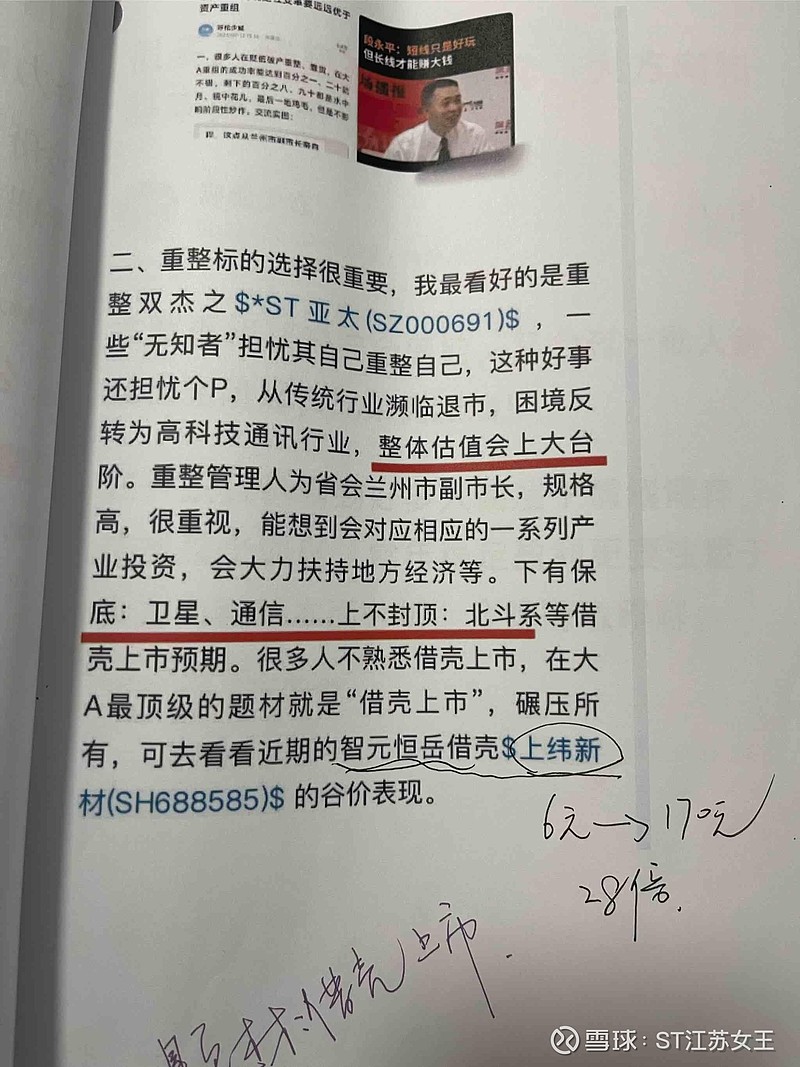 资产重组
一、很多人在贬低破产重整、
A重组的成功率能达到百分之一、二十就
不错，剩下的百分之八、九十都是水中
月、镜中花儿，最后一地鸡毛，但是不影
响阶段性炒作，交流实图：
段永平：短线只是好玩
但长线才能赚大钱
二、重整标的选择很重要，我最看好的是重
整双杰之$*ST亚太(SZ000691)$，一
些“无知者”担忧其自己重整自己，这种好事
还担忧个P，从传统行业濒临退市，困境反
转为高科技通讯行业，整体估值会上大台
阶。重整管理人为省会兰州市副市长，规格
高，很重视，能想到会对应相应的一系列产
业投资，会大力扶持地方经济等。下有保
底：卫星、通信……上不封顶：北斗系等借
壳上市预期。很多人不熟悉借壳上市，在大
A最顶级的题材就是“借壳上市”，碾压所
有，可去看看近期的智元恒岳借壳$上纬新
材(SH688585)$ 的谷价表现。
6元→170元
28倍.
借壳上市.
雪球：ST江苏女王